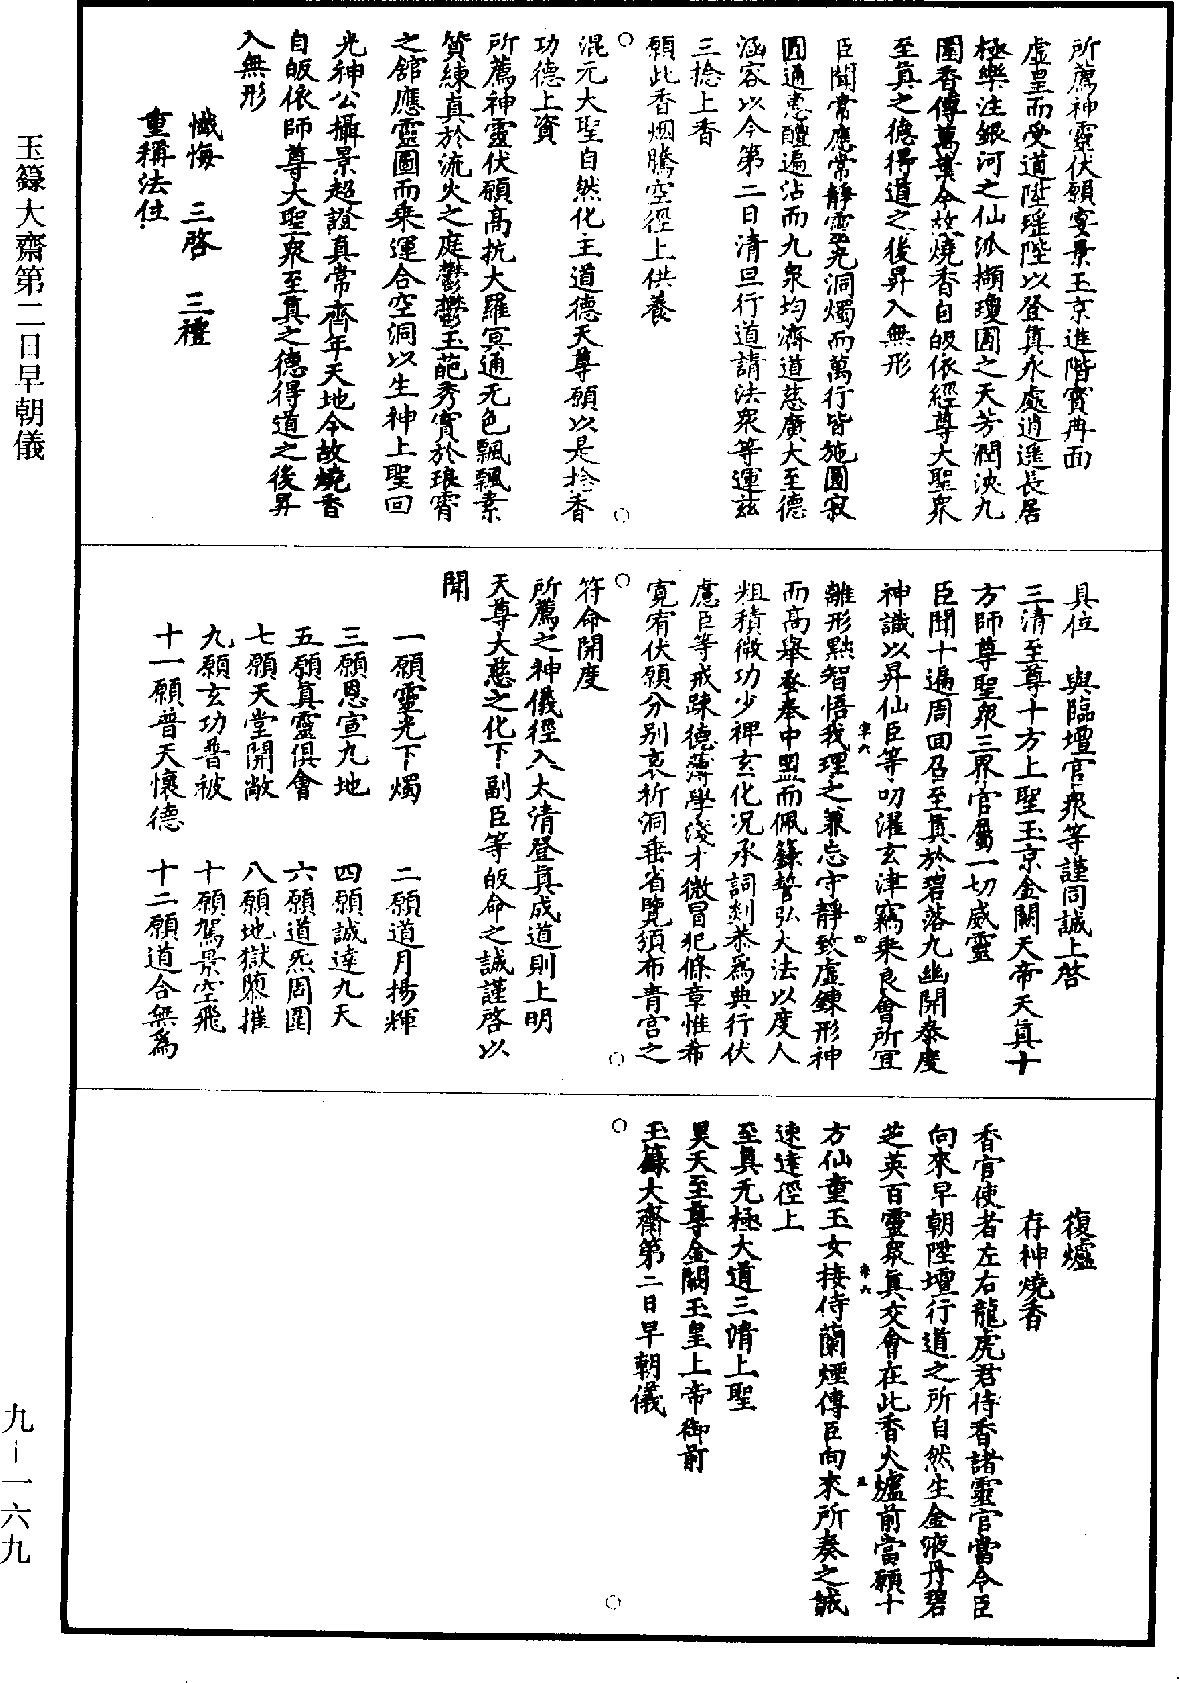 所薦神靈伏願宴景玉京進階寶冉面
虛皇而受道陞瑤陛以登真永處逍遙長居
極樂注銀河之仙派擷瓊圃之天芳潤浹九
圍香傳萬葉今故燒香自皈依經尊大聖衆
至真之德得道之後昇入無形
臣聞常應常靜靈光洞燭而萬行皆施圓寂
圓通惠體遍沾而九衆均濟道慈廣大至德
涵容以今第二日清旦行道請法衆等運茲
三捻上香
願此香烟騰空徑上供養
混元大聖自然化王道德天尊願以是捻香
功德上資
所薦神靈伏願高抗大羅冥通无色飄飄素
質練真於流火之庭鬱鬱玉葩秀實於琅霄
之舘應靈圖而乘運合空洞以生神上聖回
光神公攝景超證真常齊年天地今故燒香
自皈依師尊大聖衆至真之德得道之後昇
入無形
懺悔　三啓　三禮
重稱法位
具位　與臨壇官衆等謹同誠上啓
三清至尊十方上聖玉京金闕天帝天真十
方師尊聖衆三界官屬一切威靈
臣聞十遍周回召至真於碧落九幽開泰度
神識以昇仙臣等叨濯玄津竊乘良會所宜
離形黜智悟我理之兼忘守靜致虛鍊形神
而高舉忝奉中盟而佩籙誓弘大法以度人
粗積微功少裨玄化況承詞剡恭爲典行伏
慮臣等戒踈德薄學淺才微冒犯條章惟希
寬宥伏願分別哀祈洞垂省覽須布青宮之
符命開度
所薦之神儀徑入太清登真成道則上明
天尊大慈之化下副臣等皈命之誠謹啓以
聞
一願靈光下燭　二願道月揚輝
三願恩宣九地　四願誠達九天
五願真靈俱會　六願道炁周圍
七願天堂開敞　八願地獄隳摧
九願玄功普被　十願駕景空飛
十一願普天懷德　十二願道合無爲
復爐
存神燒香
香官使者左右龍虎君侍香諸靈官當令臣
向來早朝陞壇行道之所自然生金液丹碧
芝英百靈衆真交會在此香火爐前當願十
方仙童玉女接侍蘭煙傳臣向來所奏之誠
速達徑上
至真无極大道三清上聖
昊天至尊金闕玉皇上帝御前
玉籙大齋第二日早朝儀
玉籙大齋第二日早朝儀
九—一六九